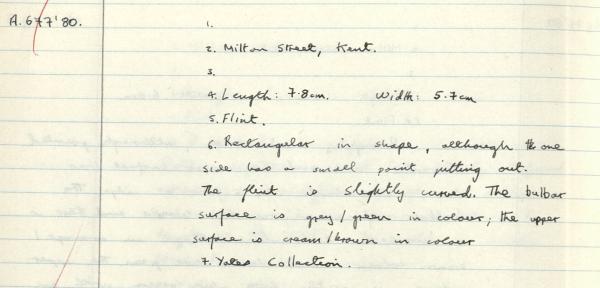 A.677'80.
1.
2. Milton Street, Kent.
3.
4. Length: 7.8cm. Width: 5.7cm
5. Flint.
6. Rectangular in shape, although the one
side has a small point jutting out.
The flint is slightly curved. The bulbar
surface is grey/green in colour; the upper
surface is cream/brown in colour
7. Yates Collection.